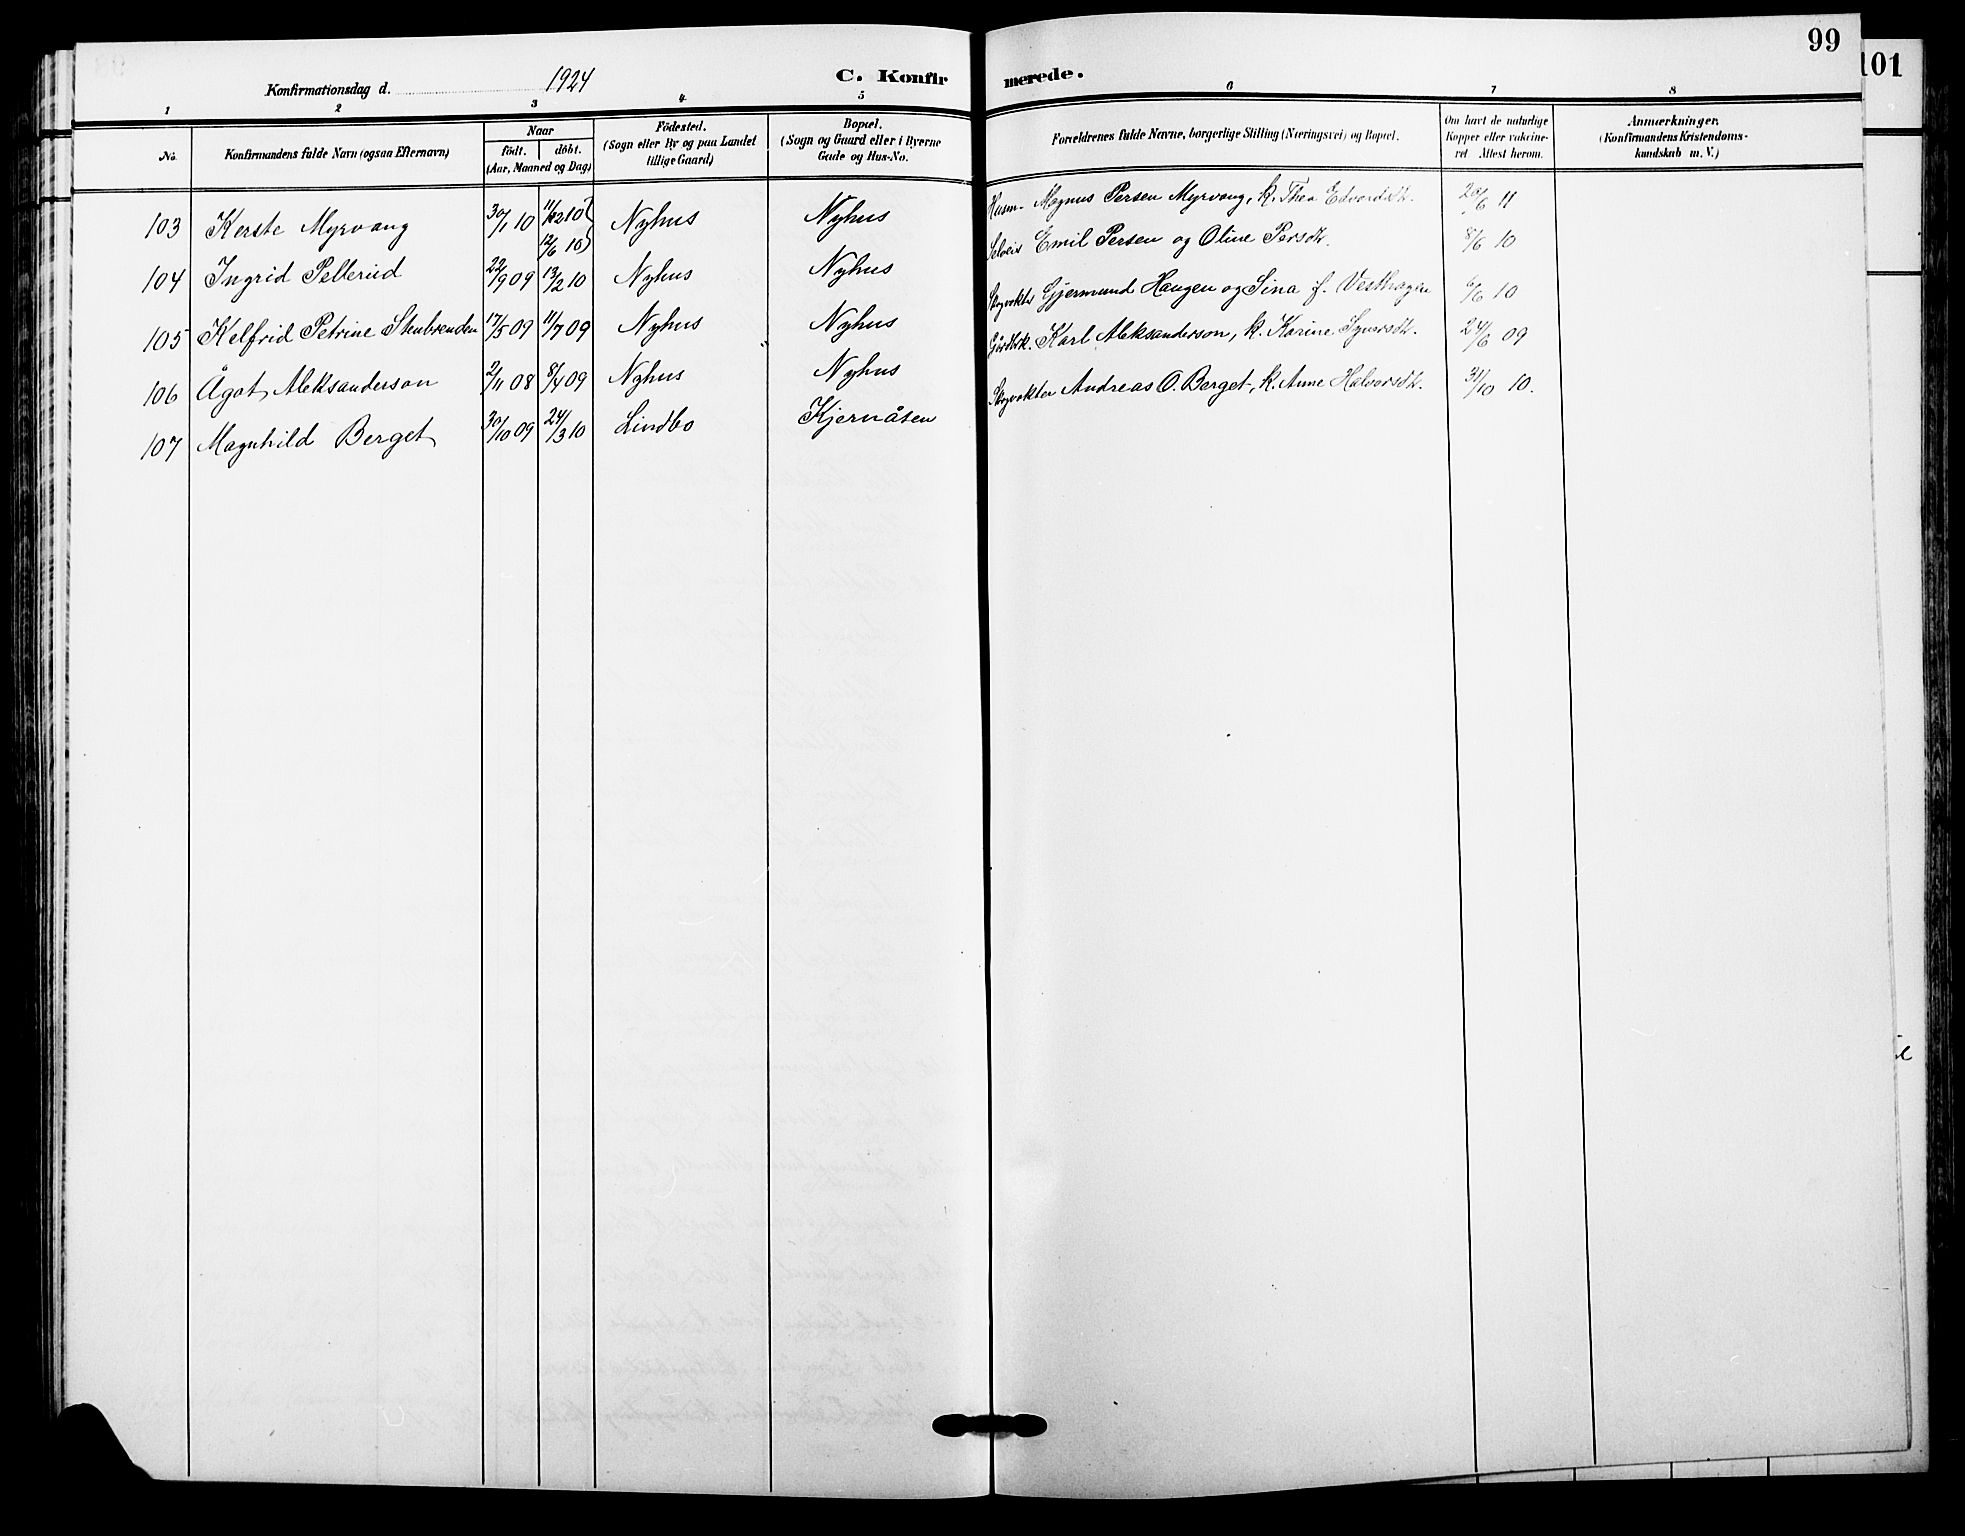 99
101
Konfirmationsdag d. 1924 C. Konfirmerede.
1 2 3 4 5 6 7 8
No. Konfirmandens fulde Navn (ogsaa Efternavn) Naar født. døbt. (Aar, Maaned og Dag) Födested. (Sogn eller By og paa Landet tillige Gaard) Bopæl. (Sogn og Gaard eller i Byerne Gade og Hus-No. Forældrenes fulde Navne, borgerlige Stilling (Næringsvei) og Bopæl. Om havt de naturlige Kopper eller vakcineret Attest herom. Anmærkninger. (Konfirmandens Kristendomskundskab m. V.)
103 Kerste Myrvang 30/1 10 11/12 10 Nyhus Nyhus Husm. Magnus Persen Myrvang, k. Thea Edvardsdtr. 20/6 11
104 Ingrid Pellerud 22/9 09 12/6 10 13/2 10 Nyhus Nyhus Selveier Emil Persen og Oline Persdtr. 8/6 10
105 Kelfrid Petrine Stenbrenden 17/5 09 11/7 09 Nyhus Nyhus Skogvokter Gjermund Haugen og Sina f. Vesthagen 6/6 10
106 Ågot Aleksanderson 2/11 08 8/4 09 Nyhus Nyhus Gårdbr. Karl Aleksanderson, k. Karine Syversdtr. 24/6 09
107 Magnhild Berget 30/10 09 24/3 10 Lindbo Kjernåsen Skogvokter Andreas O. Berget, k. Anne Halvorsdtr. 31/10 10.